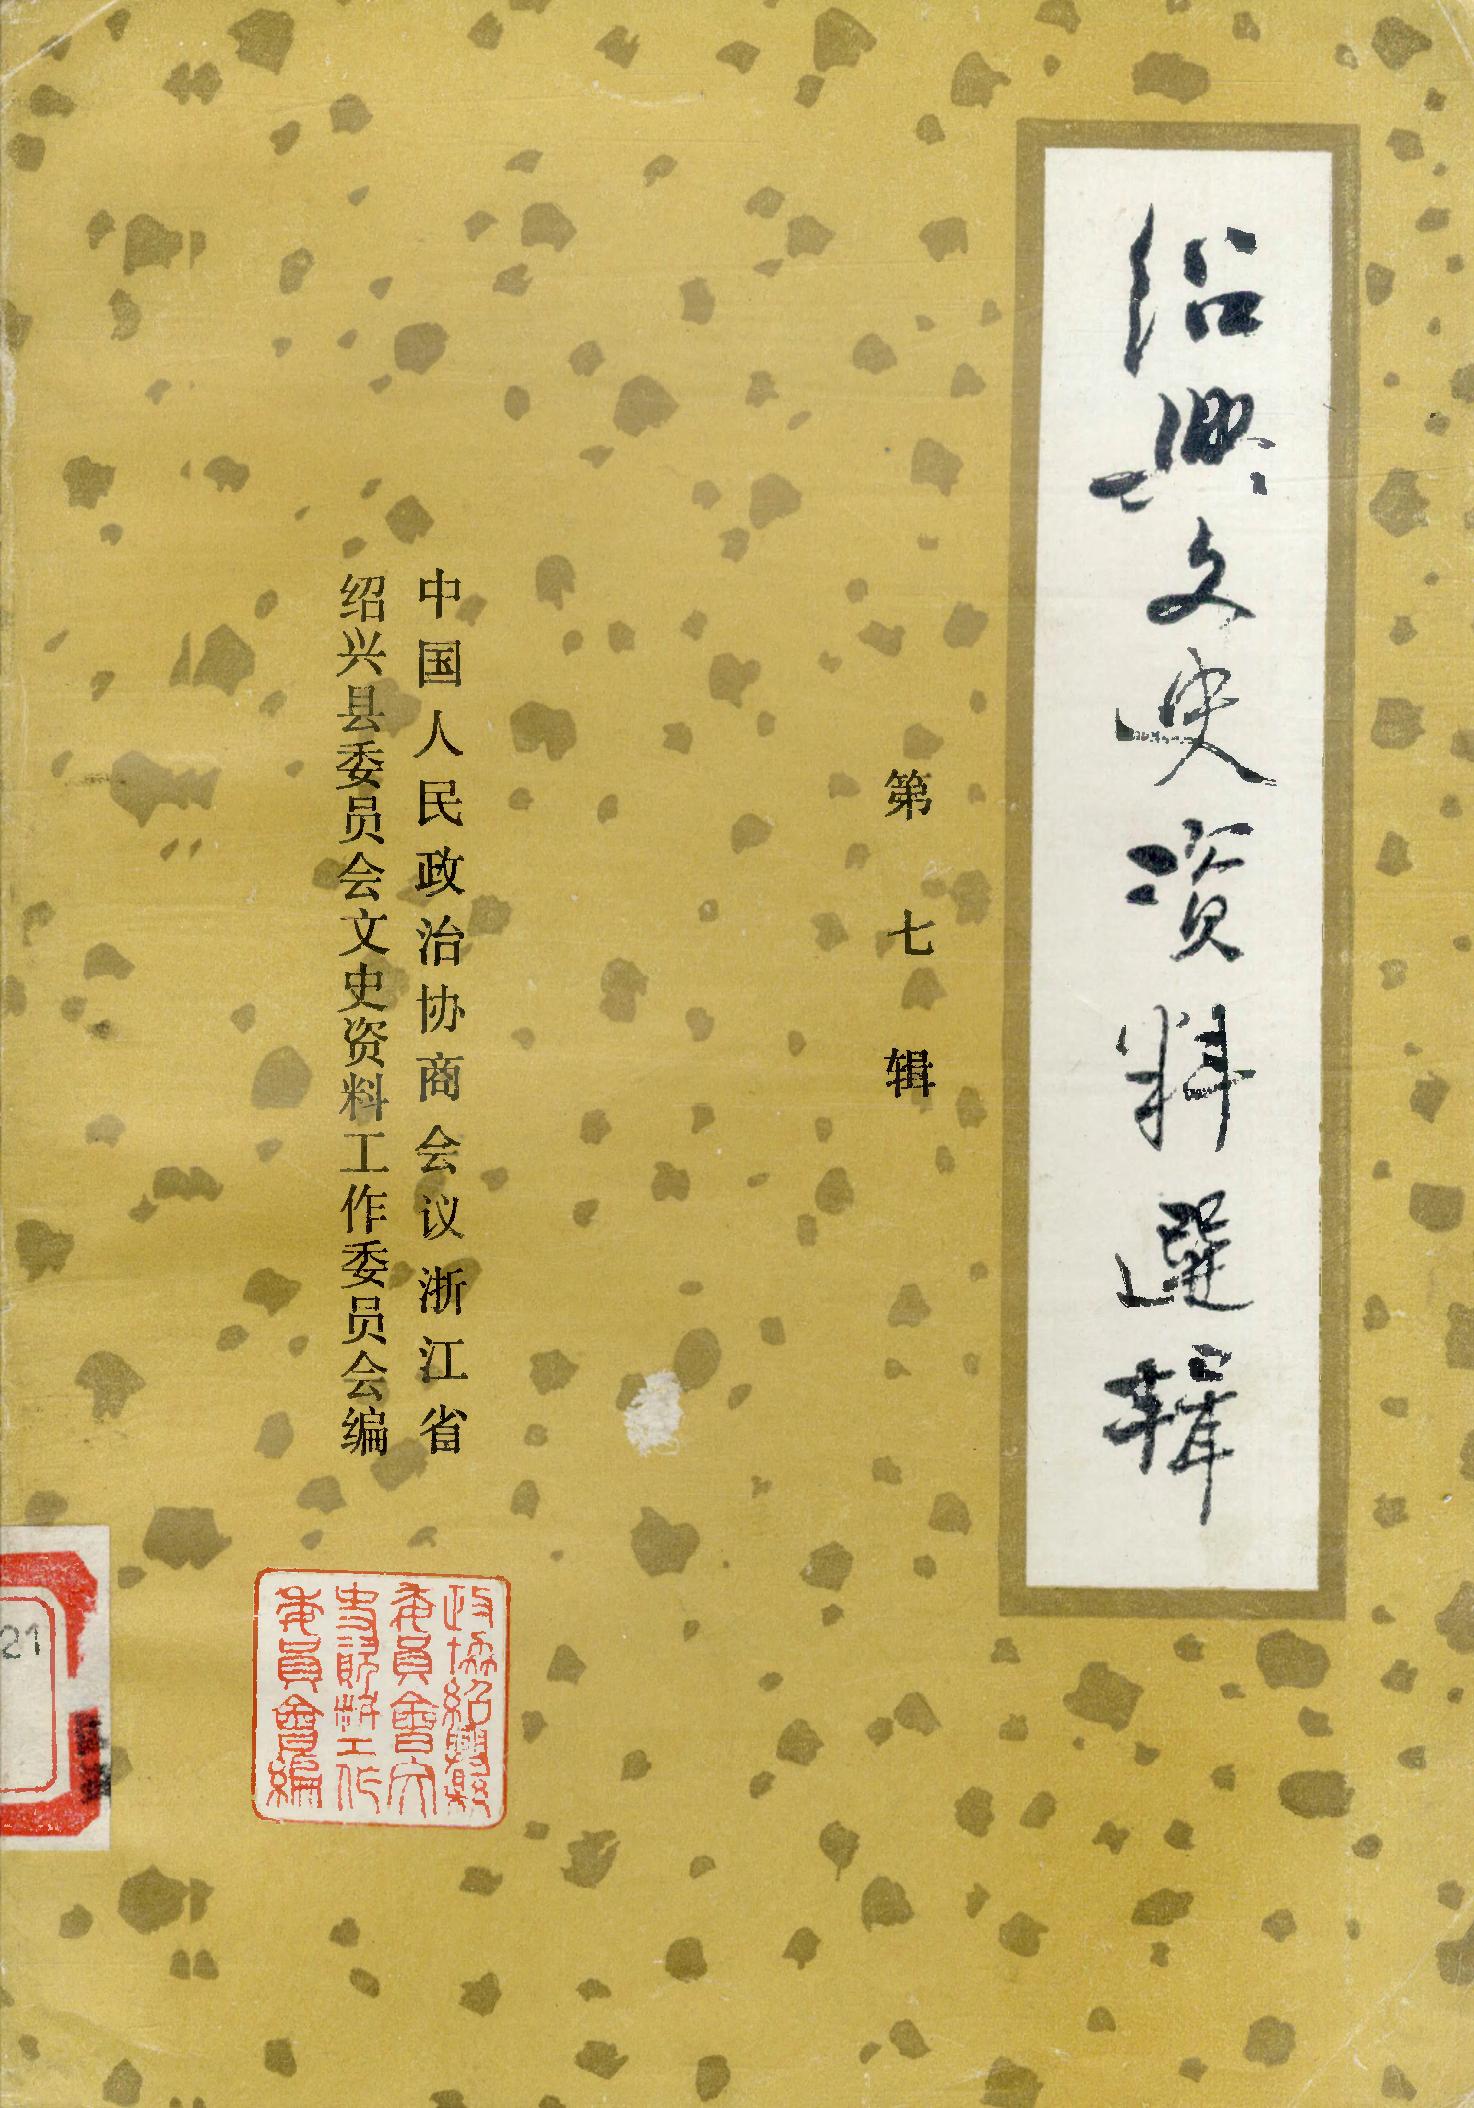 绍興文史資料選輯
第七辑
中国人民政治协商会议浙江省
绍兴县委员会文史资料工作委员会编
政協紹興縣
委員會文
史資料工作
委員會編
21